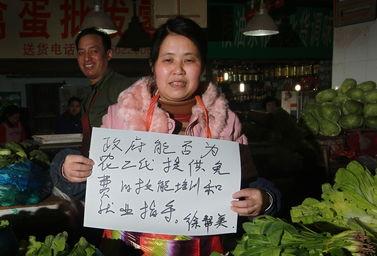 禽蛋批发
送货电话
政府能否为
农二代提供免
费的技能培训和
就业指导。徐帮美